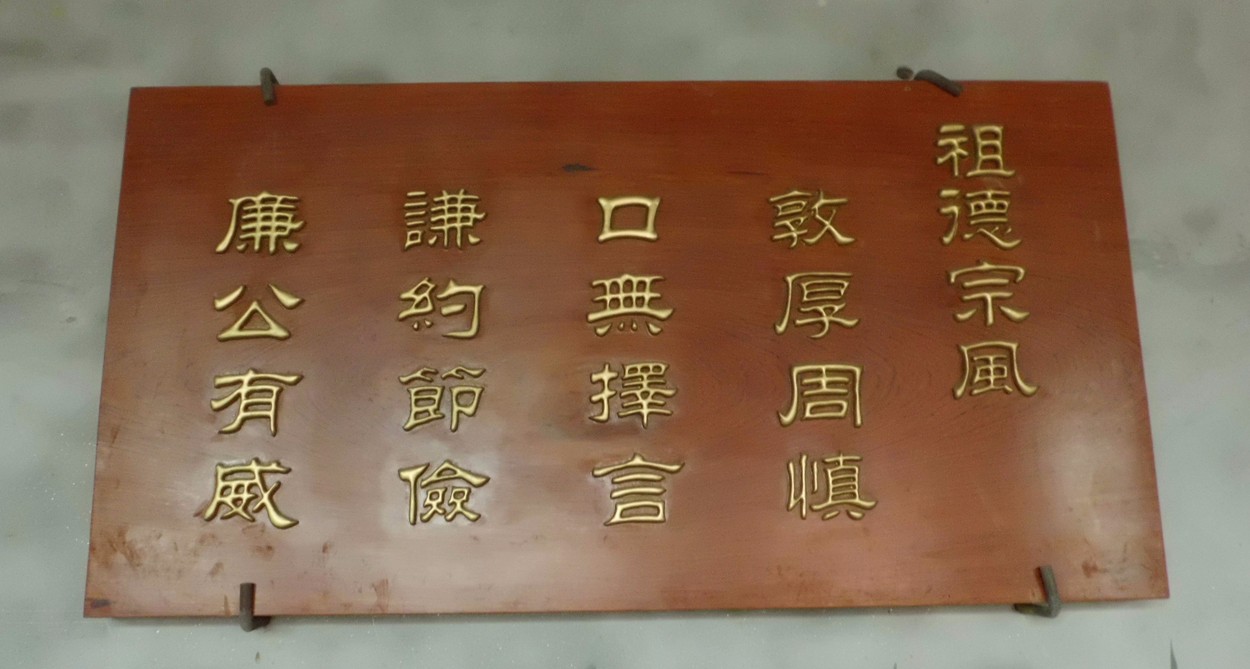 祖德宗風
敦厚周慎
口無擇言
謙約節儉
廉公有威